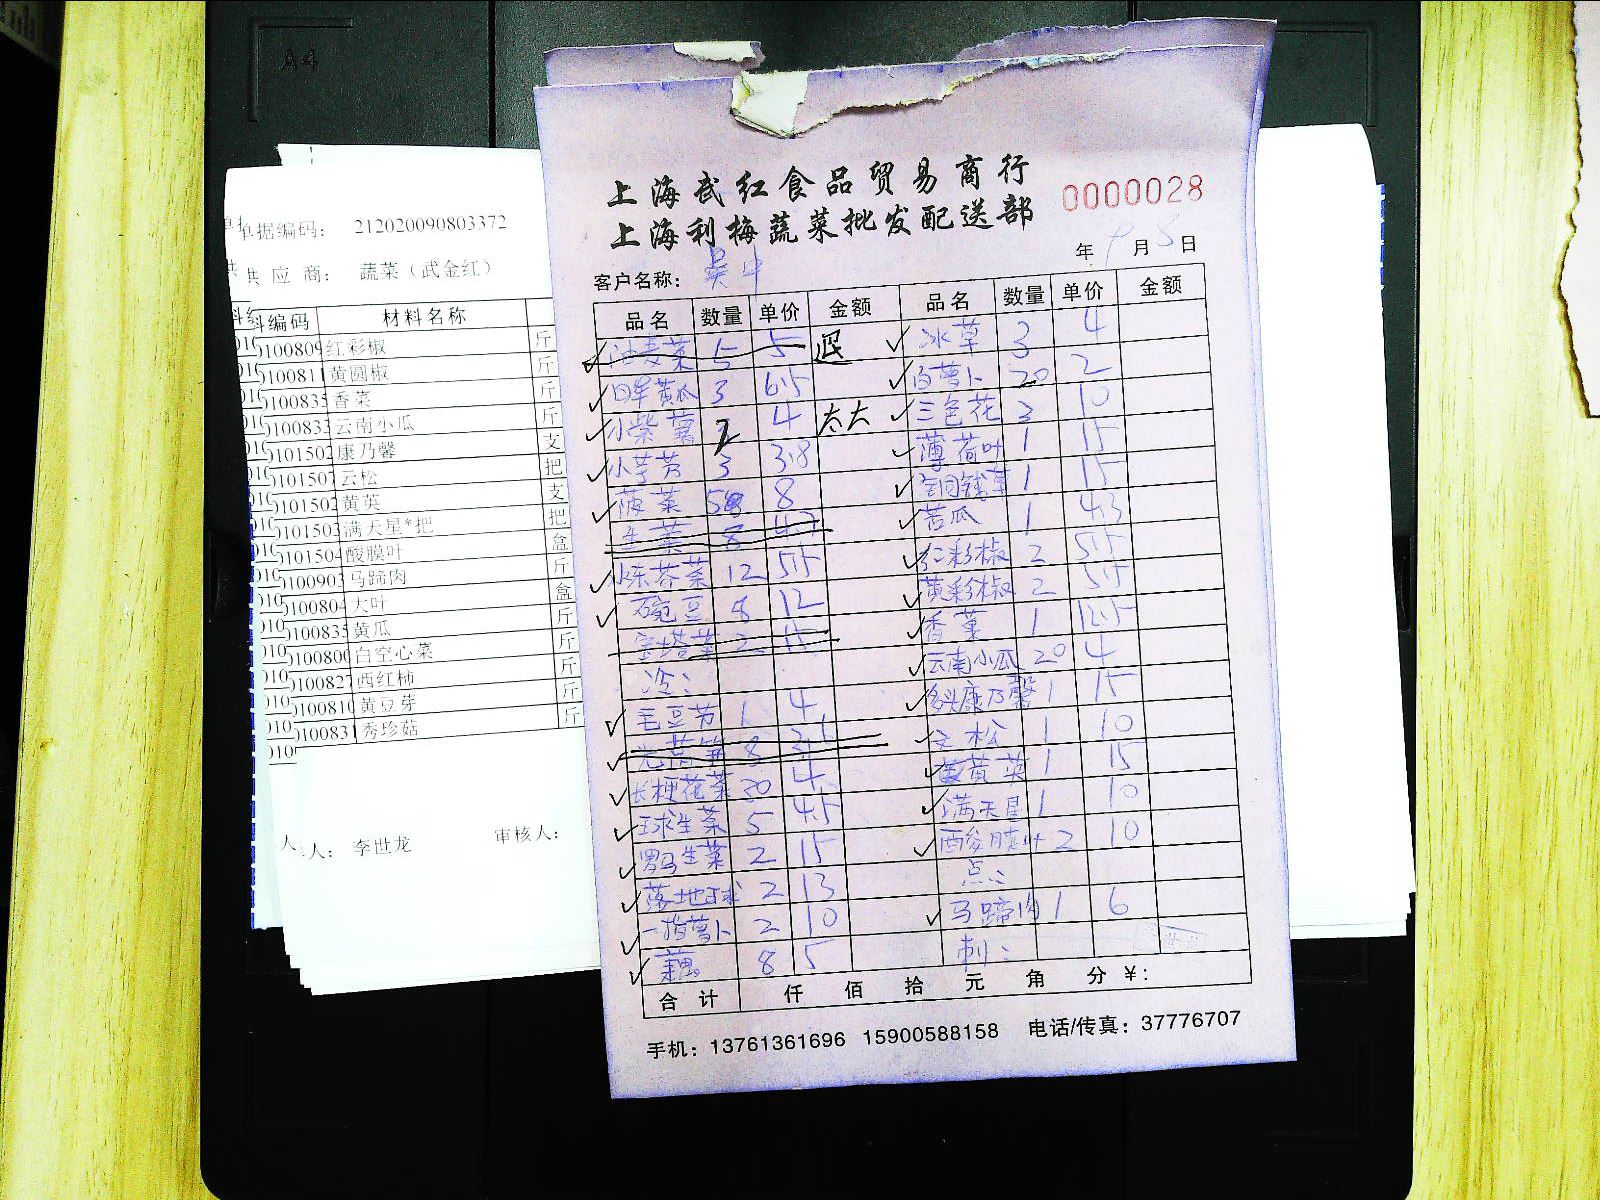 A4
单据编码： 212020090803372
供 应 商： 蔬菜（武金红）
编码 材料名称
0100809 红彩椒 斤
0100811 黄圆椒 斤
010083 香菜 斤
010083 云南小瓜 斤
0101502 康乃馨 支
010150 云松 把
0101502 黄英 支
010150 满天星*把 把
010150 酸膜叶 盒
0100903 马蹄肉 斤
0100804 大叶 盒
010083 黄瓜 斤
010080 白空心菜 斤
010082 西红柿 斤
010081 黄豆芽 斤
010083 秀珍菇 斤
人： 李世龙 审核人：
上海武红食品贸易商行
上海利梅蔬菜批发配送部
0000028
年 9 月 8 日
客户名称： 吴中
品名 数量 单价 金额 品名 数量 单价 金额
油麦菜 5 5 退 冰草 3 4
日本黄瓜 3 6.5 白萝卜 20 2
小紫薯 2 4 太大 三色花 3 10
小芋艿 3 3.8 薄荷叶 1 15
菠菜 8 铜钱草 1 15
生菜 8 苦瓜 1 4.3
12 5.5 红彩椒 2 5.5
豌豆 12 黄彩椒 2 5.5
宝塔菜 2 15 香菜 1 12.5
冷： 云南小瓜 20 4
毛豆节 1 4 多头康乃馨 1 15
8 文松 1 10
长梗花菜 30 4 黄英 1 15
球生菜 5 4.5 满天星 1 10
罗马生菜 2 15 叶 2 10
落地球 2 13 点：
一指萝卜 2 10 马蹄肉 1 6
藕 8 5 刺：
合计 仟 佰 拾 元 角 分 ￥：
手机：13761361696 15900588158 电话/传真：37776707